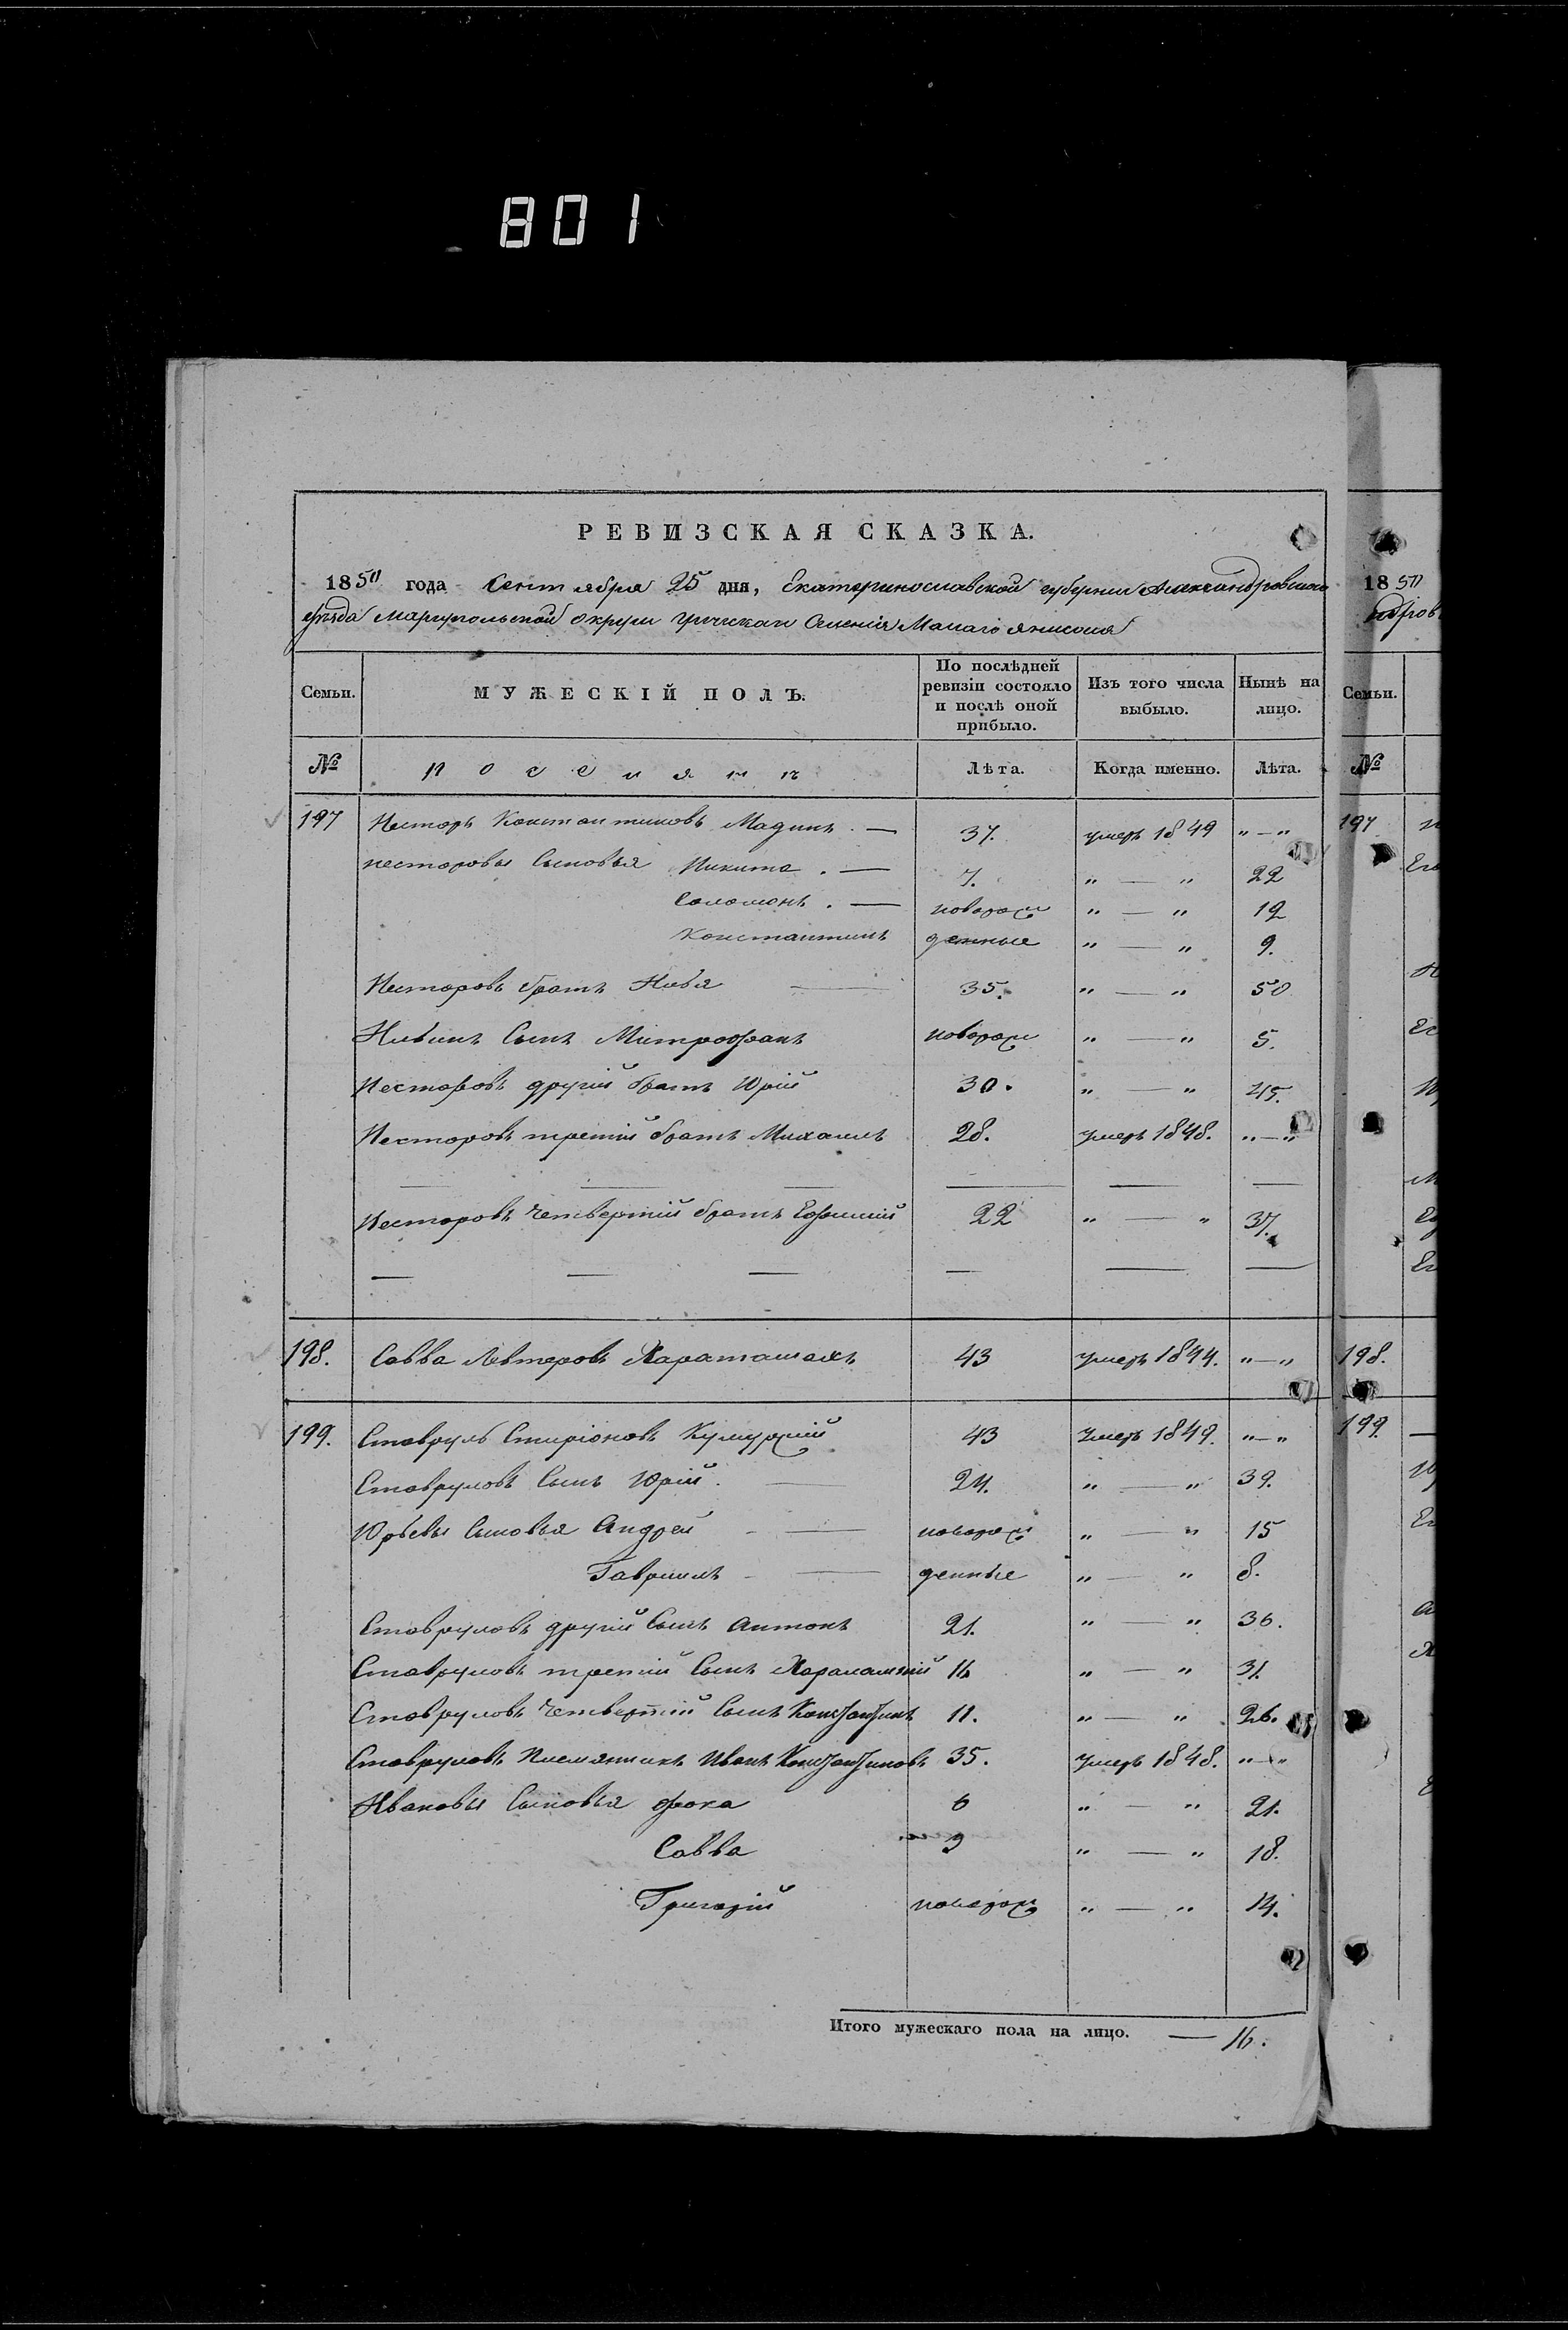 801
РЕВИЗСКАЯ СКАЗКА.
1850 года Сентября 25 дня, Екатеринославской губернии Александровскаго
уѣзда Мариупольской округи греческаго Селенія Малаго Янисоля
Семьи. МУЖЕСКІЙ ПОЛЪ. По послѣдней ревизіи состояло и послѣ оной прибыло. Изъ того числа выбыло. Нынѣ на лицо. Семьи.
№ Поселянъ Лѣта. Когда именно. Лѣта. №
197 Несторъ Константиновъ Мадинъ. — 37. умеръ 1849 „—„ 197
Нестеровы Сыновья Никита. — 7. „—„ 22
Соломонъ. — новорож „—„ 12
Константинъ денные „—„ 9.
Несторовъ братъ Илья — 35. „—„ 50
Ильинъ Сынъ Митрофанъ новорож „—„ 5.
Несторовъ другій братъ Юрій 30. „—„ 45.
Несторовъ третій братъ Михаилъ 28. умеръ 1848. „—„
Несторовъ четвертый братъ Ефимій 22 „—„ 37.
198. Савва Левтеровъ Хараташахъ 43 умеръ 1844. „—„ 198.
199. Ставрулъ Спиріоновъ 43 умеръ 1849. „—„ 199
Ставруловъ Сынъ Юрій. — 24. „—„ 39.
Юрьевы Сыновья Андрей — новорож „—„ 15
Гавриилъ — денные „—„ 8.
Ставруловъ другій Сынъ Антонъ 21. „—„ 36.
Ставруловъ третій Сынъ Харалампій 16 „—„ 31.
Ставруловъ четвертій Сынъ Константинъ 11. „—„ 26.
Ставруловъ Племянникъ Иванъ Константиновъ 35. умеръ 1848. „—„
Ивановы Сыновья Фока 6 „—„ 21.
Савва 3 „—„ 18.
Григорій новорож „—„ 14.
Итого мужескаго пола на лицо. — 16.